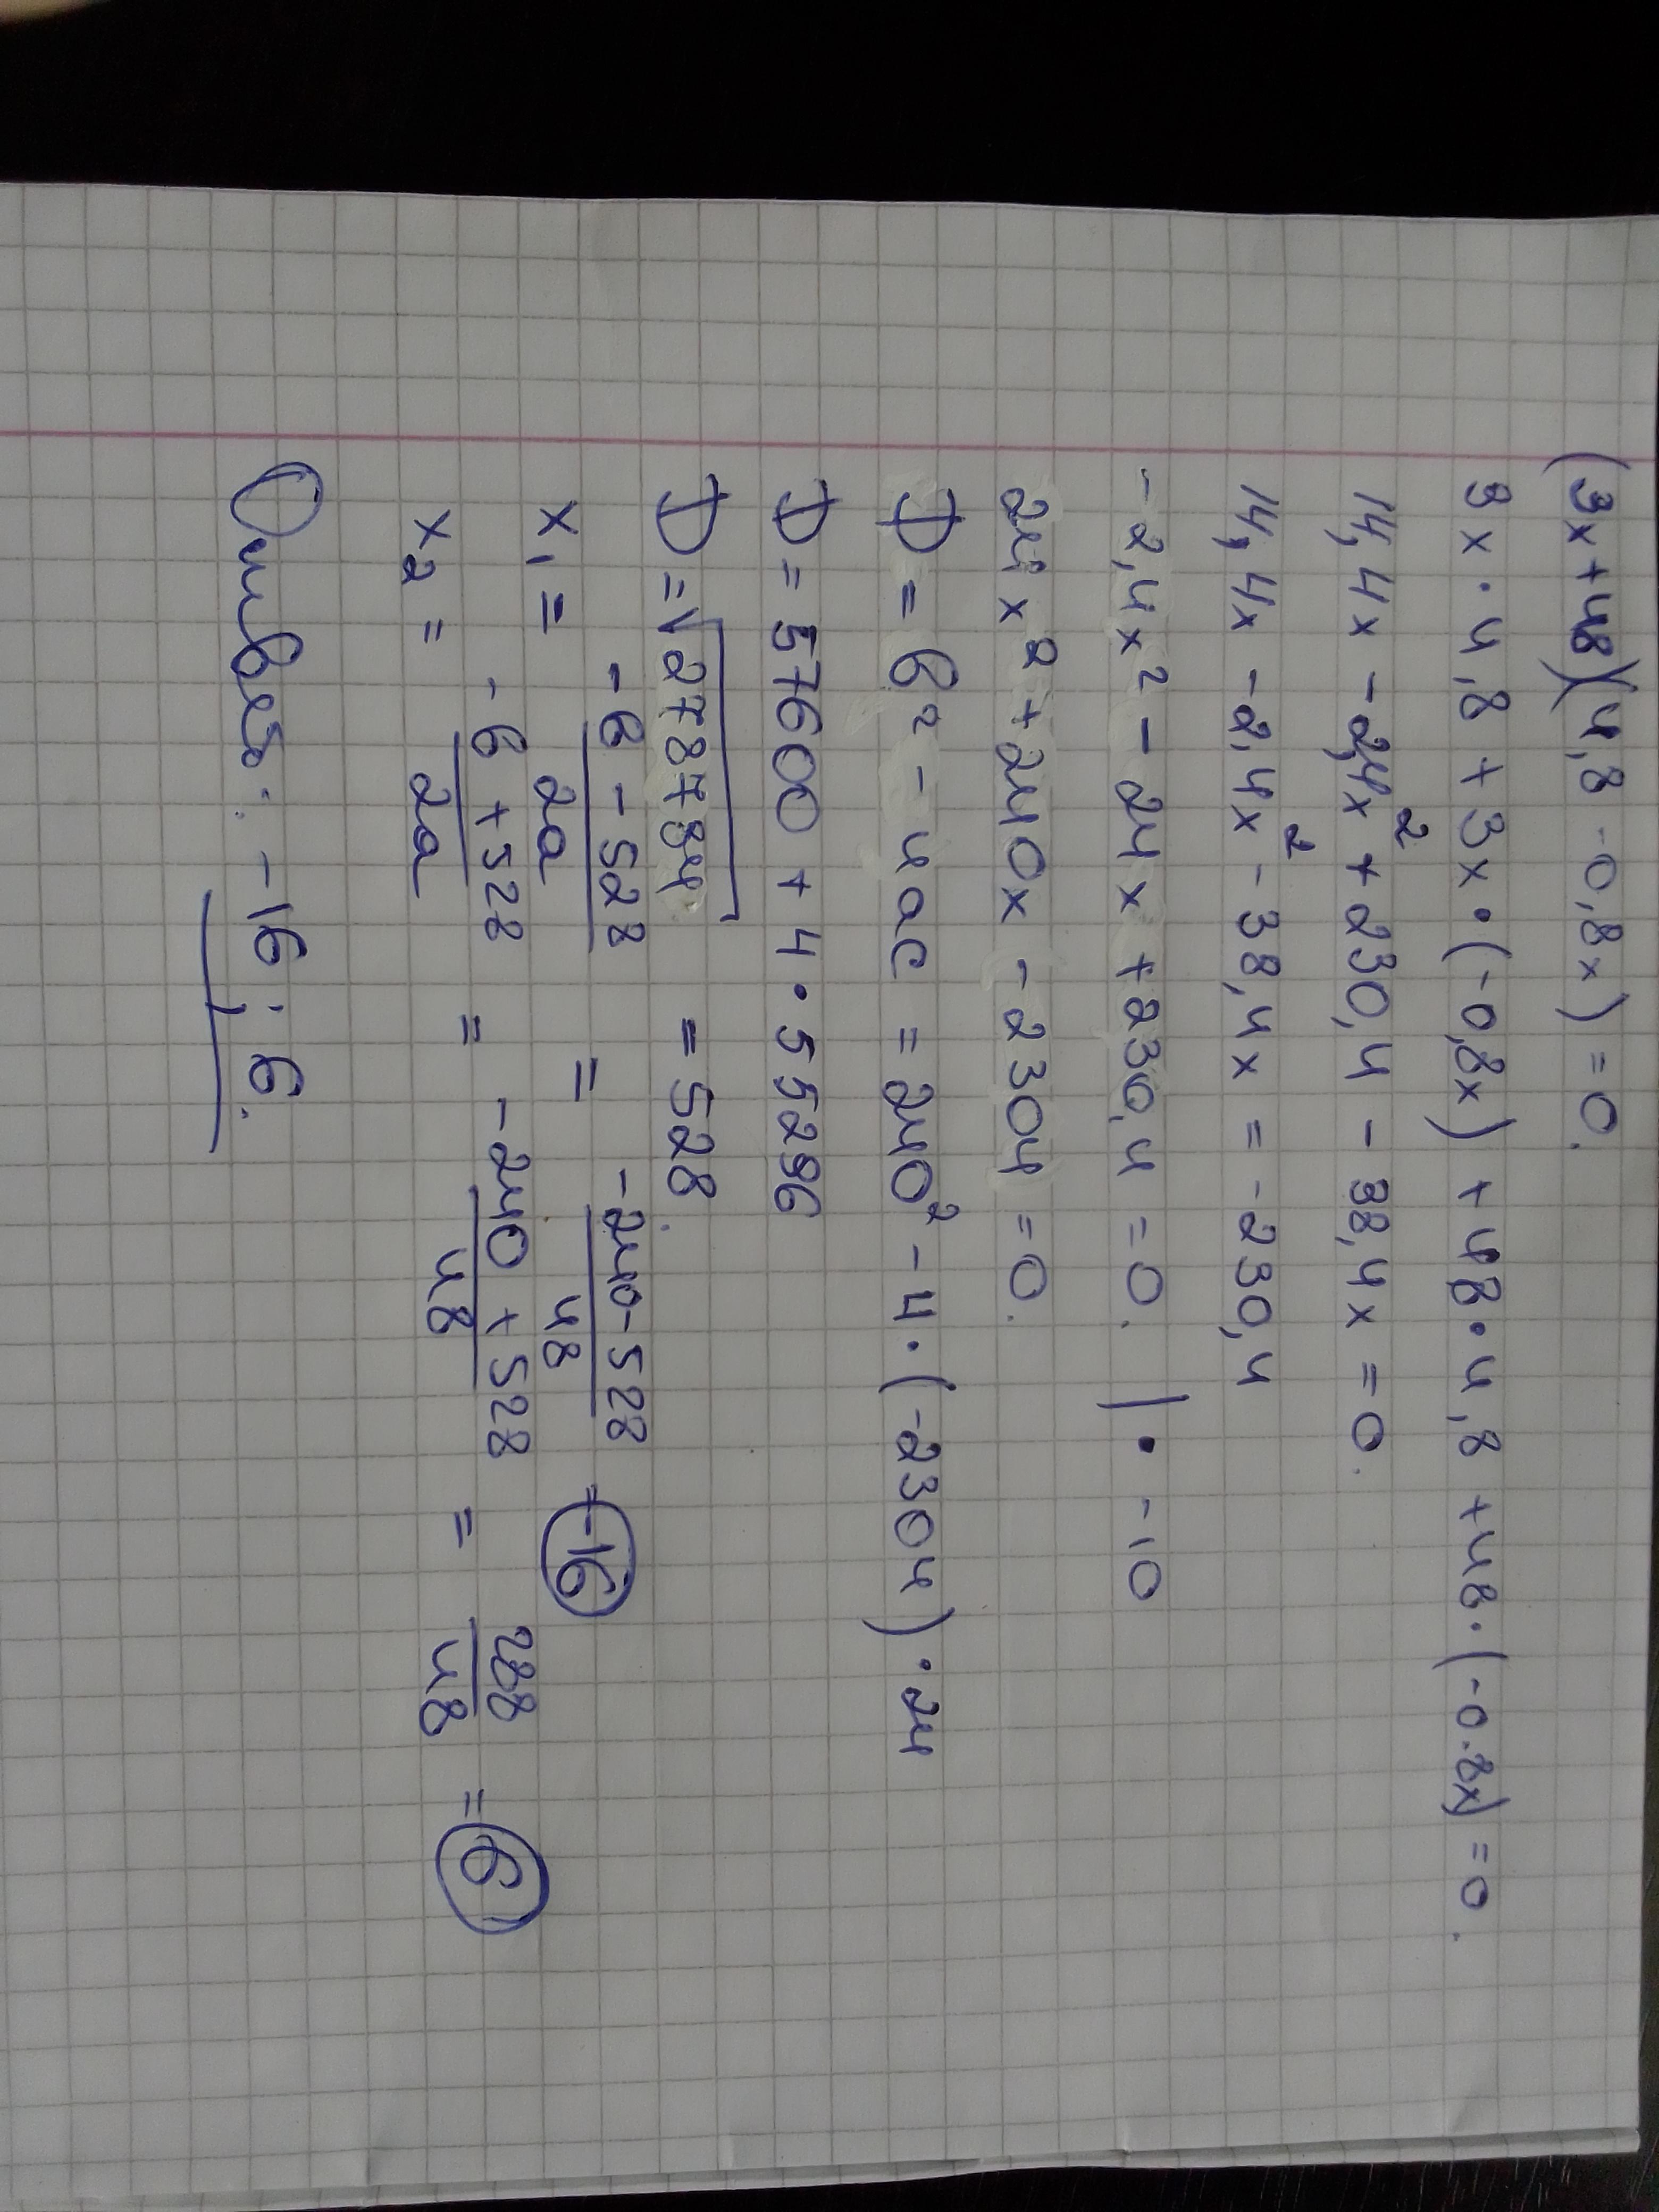 (3x+48)(4,8-0,8x)=0.
3x·4,8+3x·(-0,8x)+48·4,8+48·(-0.8x)=0.
14,4x-2,4x²+230,4-38,4x=0.
14,4x-2,4x²-38,4x=-230,4
-2,4x²-24x+230,4=0. |·-10
24x²+240x-2304=0.
D=b²-4ac=240²-4·(-2304)·24
D=57600+4·55296
D=√278784=528
x₁=\frac{-b-528}{2a}=\frac{-240-528}{48}=-16
x₂=\frac{-b+528}{2a}=\frac{-240+528}{48}=\frac{288}{48}=6
Ответ: -16; 6.